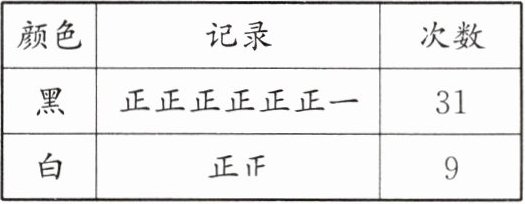 颜色 记录 次数
黑 正正正正正正一 31
白 正𤴓 9